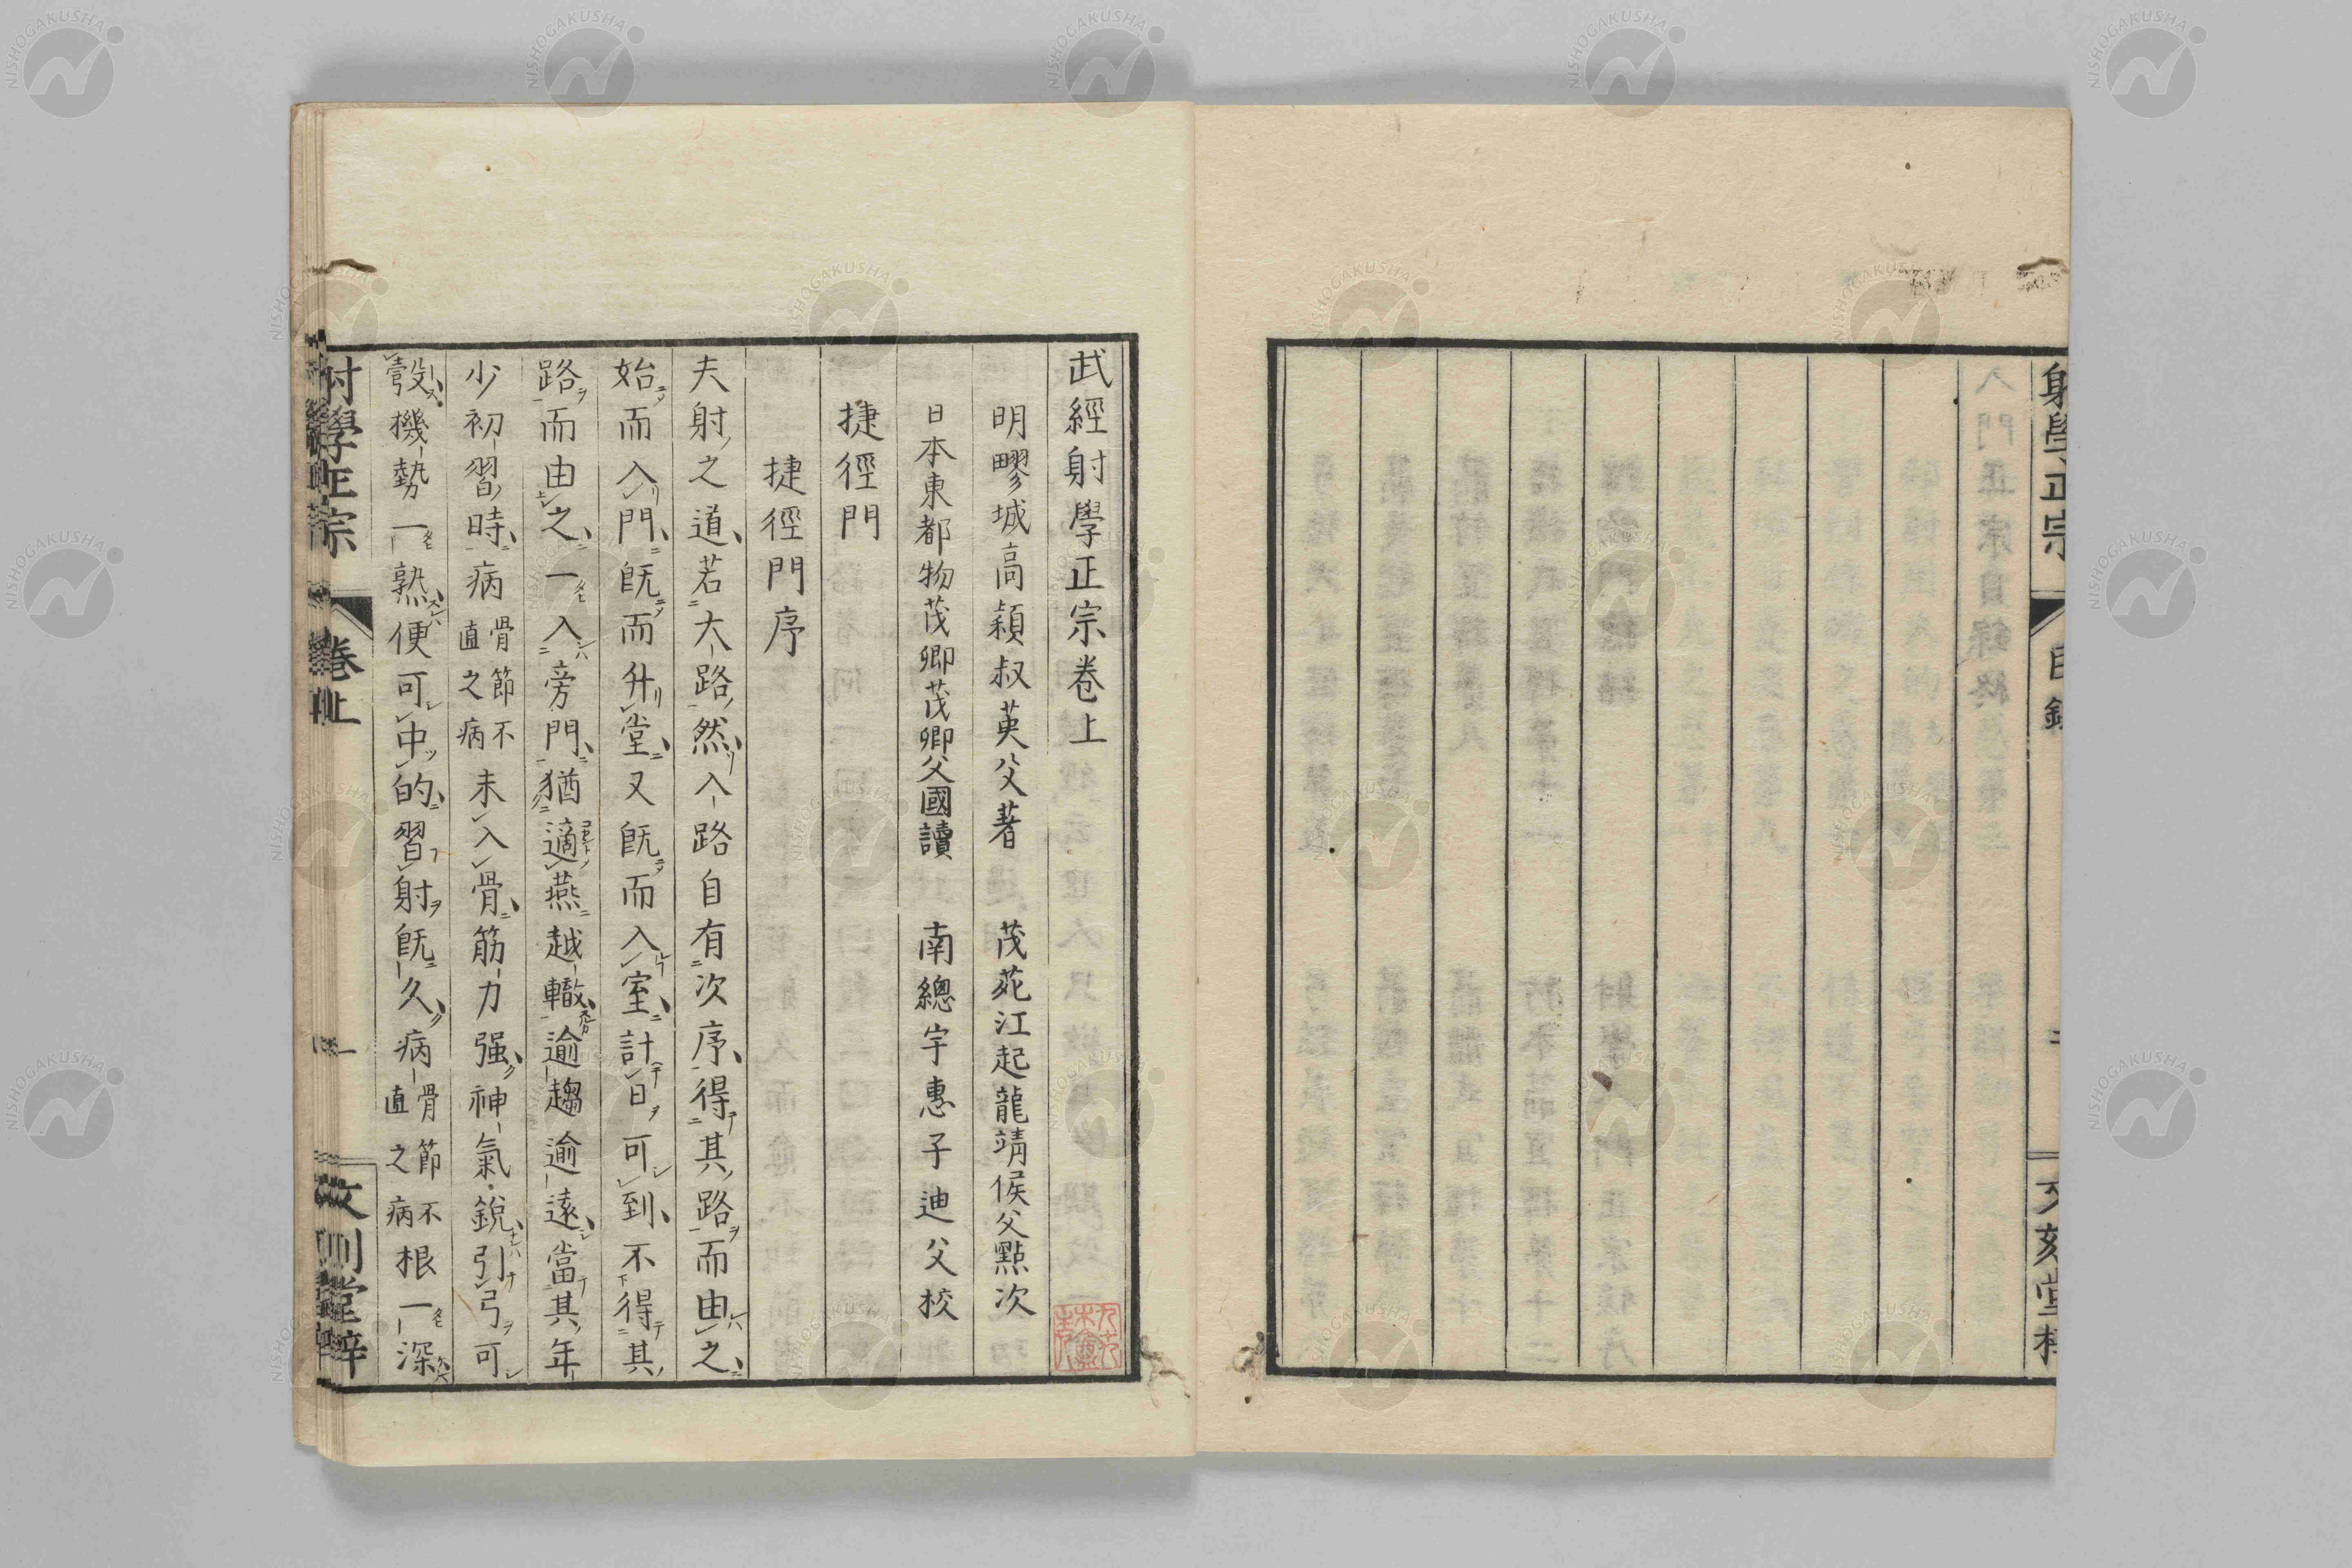 武經射學正宗卷上
明瞿城高穎叔英父著 茂苑江起龍靖侯父點次
日本東都物茂卿茂卿父國讀 南總宇惠子迪父校
捷徑門
捷徑門序
夫射之道若大路然入路自有次序得其路而由之
始而入門旣而升堂又旣而入室計日可到不得其
路而由之一入旁門猶適燕越轍逾趨逾遠當其年
少初習時病骨節不直之病未入骨筋力强神氣銳引弓可
彀機勢一熟便可中的習射旣久病骨節不直之病根一深
射學正宗 卷上 一
射學正宗 目錄
文刻堂梓
NISHOGAKUSHA